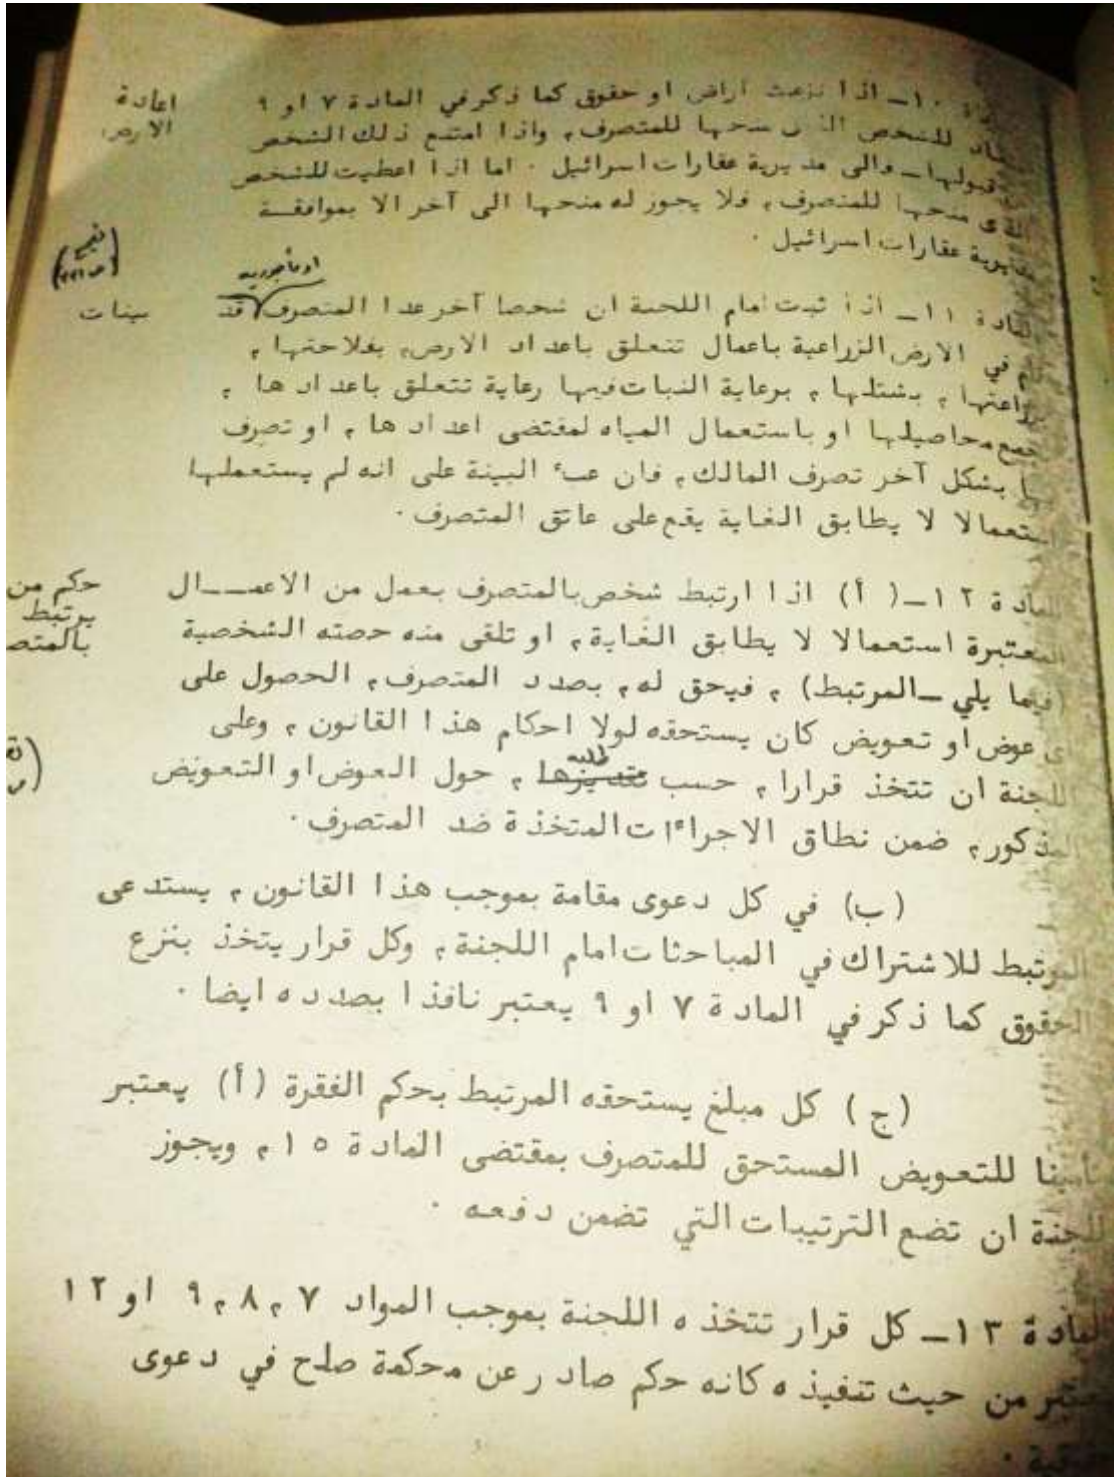 ١٠ـ اذا نزعت اراض او حقوق كما ذكر في المادة ٧ او ٩
اعادة
الارض
للشخص الذي منحها للمتصرف، واذا امتنع ذلك الشخص
قبولها ـ والى مديرية عقارات اسرائيل ٠ اما اذا اعطيت للشخص
منحها للمتصرف، فلا يجوز له منحها الى آخر الا بموافقة
مديرية عقارات اسرائيل ٠
او مأجوريه
المادة ١١ـ اذا ثبت امام اللجنة ان شخصا آخر عدا المتصرف قد
بينات
في الارض الزراعية باعمال تتعلق باعداد الارض، بفلاحتها،
بزراعتها، بشتلها، برعاية النبات فيها رعاية تتعلق باعدادها،
بجمع محاصيلها او باستعمال المياه لمقتضى اعدادها، او تصرف
بها بشكل آخر تصرف المالك، فان عبء البينة على انه لم يستعملها
استعمالا لا يطابق الغاية يقع على عاتق المتصرف٠
المادة ١٢ـ(أ) اذا ارتبط شخص بالمتصرف بعمل من الاعمـــال
حكم من
يرتبط
بالمتص
المعتبرة استعمالا لا يطابق الغاية، او تلقى منه حصته الشخصية
(فيما يلي ـ المرتبط) ، فيحق له، بصدد المتصرف، الحصول على
عوض او تعويض كان يستحقه لولا احكام هذا القانون ، وعلى
طلبه
اللجنة ان تتخذ قرارا ، حسب تقديرها ، حول العوض او التعويض
المذكور، ضمن نطاق الاجراءات المتخذة ضد المتصرف٠
(ب) في كل دعوى مقامة بموجب هذا القانون ، يستدعى
المرتبط للاشتراك في المباحثات امام اللجنة، وكل قرار يتخذ بنزع
الحقوق كما ذكر في المادة ٧ او ٩ يعتبر نافذا بصدده ايضا ٠
(ج) كل مبلغ يستحقه المرتبط بحكم الفقرة (أ) يعتبر
تأمينا للتعويض المستحق للمتصرف بمقتضى المادة ١٥، ويجوز
للجنة ان تضع الترتيبات التي تضمن دفعه ٠
المادة ١٣ـ كل قرار تتخذه اللجنة بموجب المواد ٧،٨،٩ او ١٢
يعتبر من حيث تنفيذه كانه حكم صادر عن محكمة صلح في دعوى